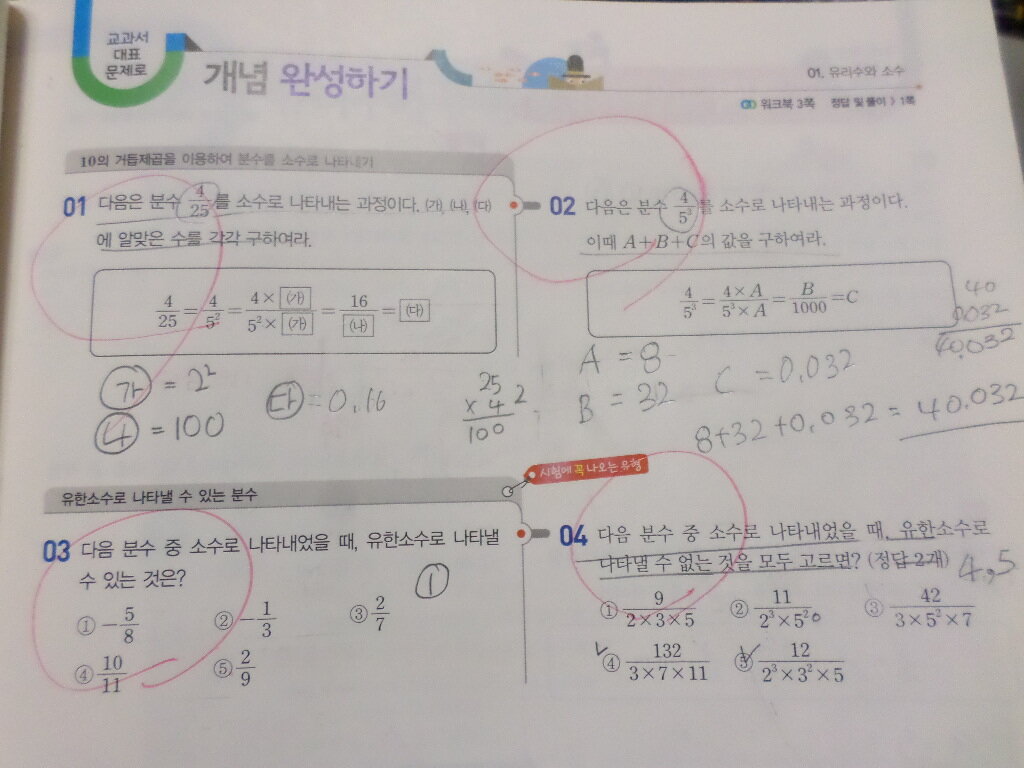 교과서
대표
문제로
개념 완성하기
01. 유리수와 소수
워크북 3쪽 정답 및 풀이 > 1쪽
10의 거듭제곱을 이용하여 분수를 소수로 나타내기
01 다음은 분수 4/25를 소수로 나타내는 과정이다. (가), (나), (다)
에 알맞은 수를 각각 구하여라.
4/25 = 4/5² = 4×(가)/5²×(가) = 16/(나) = (다)
가 = 2²
다 = 0.16
나 = 100
25
× 4
100
2
02 다음은 분수 4/5³를 소수로 나타내는 과정이다.
이때 A+B+C의 값을 구하여라.
4/5³ = 4×A/5³×A = B/1000 = C
40
0.032
40.032
A = 8
B = 32
C = 0.032
8+32+0.032 = 40.032
유한소수로 나타낼 수 있는 분수
03 다음 분수 중 소수로 나타내었을 때, 유한소수로 나타낼
수 있는 것은?
①
① -5/8 ② -1/3 ③ 2/7
④ 10/11 ⑤ 2/9
시험에 꼭 나오는 유형
04 다음 분수 중 소수로 나타내었을 때, 유한소수로
나타낼 수 없는 것을 모두 고르면? (정답 2개)
4,5
① 9/2×3×5 ② 11/2³×5² ③ 42/3×5²×7
④ 132/3×7×11 ⑤ 12/2³×3²×5